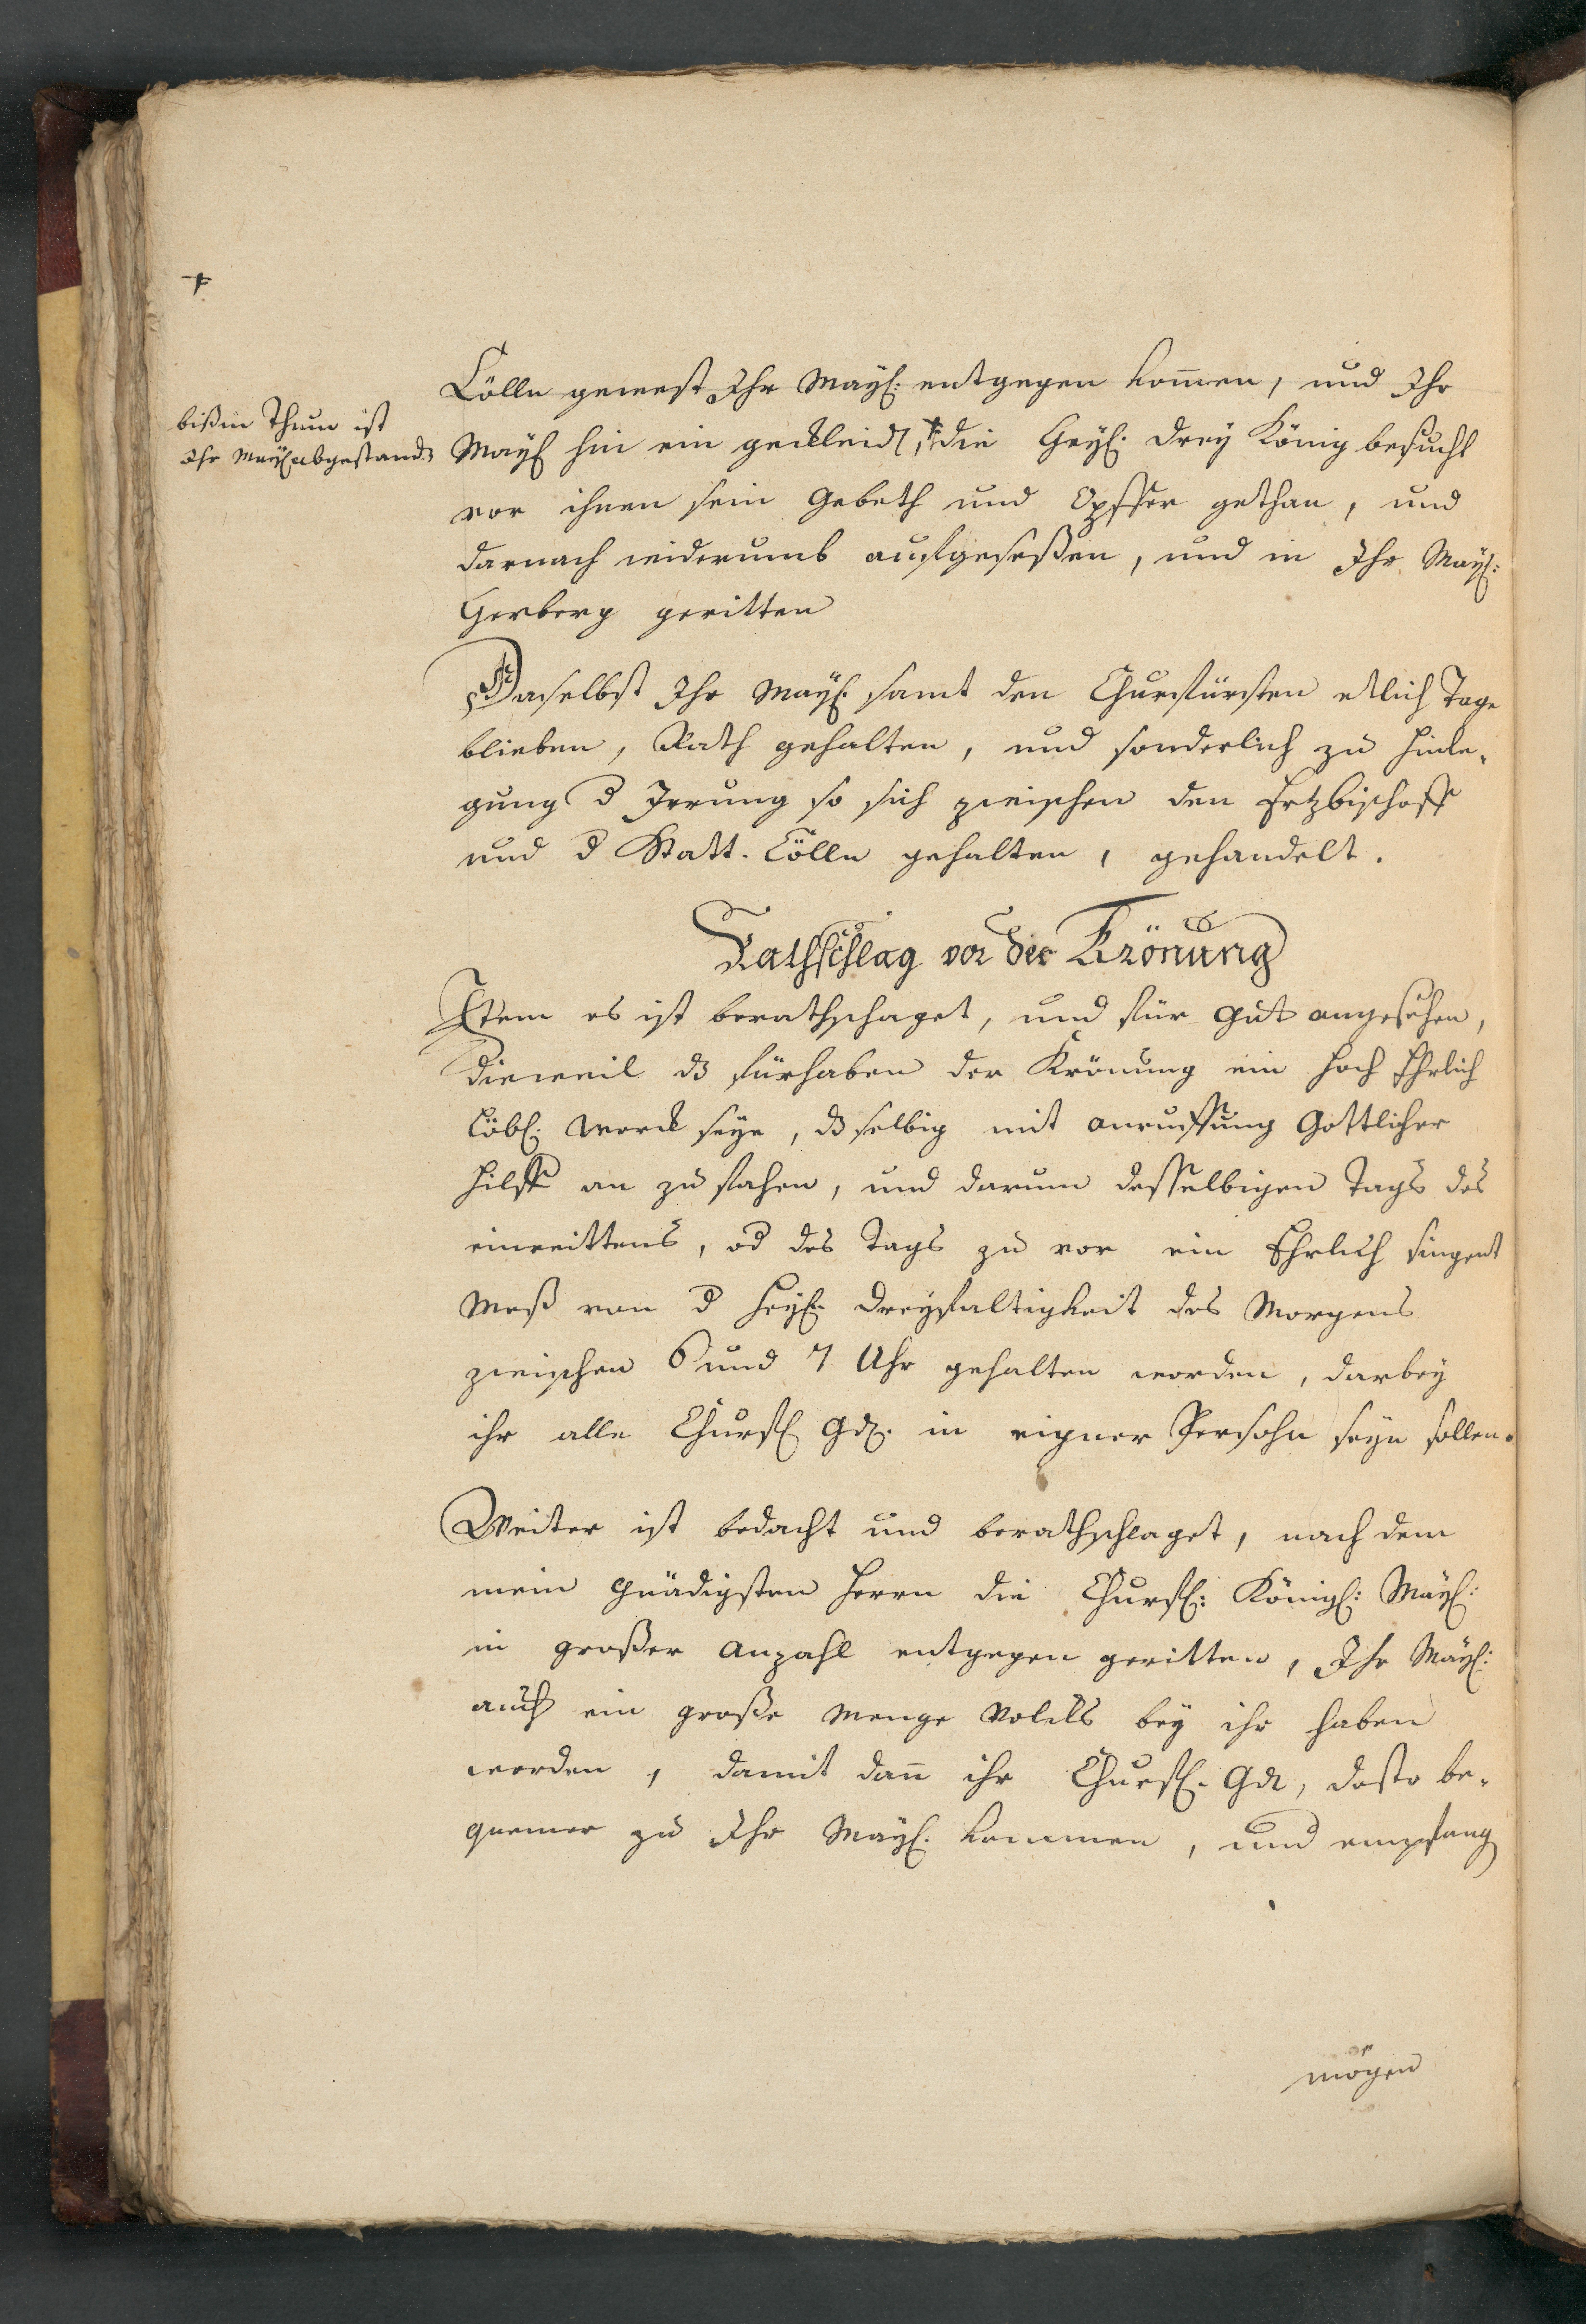 Cölln gewest Ihr Mayt: entgegen kom̄en, und Ihr
bißin Thum ist
Ihr Mayt abgestandē
Mayt hin ein gekleidt, ⁜ die Heyl: drey König besucht
vor ihnen sein Gebeth und Opffer gethan, und
darnach widerumb auffgeseßen, und in Ihr Mayt:
Herberg geritten
Daselbst Ihr Mayt. samt den Churfürsten etlich Tage
blieben, Rath gehalten, und sonderlich zu hinle-
gung d Irrung so sich zwischen den Ertzbischoff
und d Statt. Cölln gehalten, gehandelt.
Rathschlag vor der Krönung
Item es ist berathschaget, und für gut angesehen,
dieweil dz fürhaben der Krönung ein hoch Ehrlich
Löbl: werck seye, dz selbig mit anruffung Gottlicher
hilff an zu fahen, und darum desselbigen Tags des
einreittens, od des Tags zu vor ein Ehrlich singent
Meß von d heyl. dreyfaltigkeit des Morgens
zwischen 6 und 7 Uhr gehalten worden, darbey
ihr alle Churfl Gd. in eigner Persohn seyn sollen.
Weiter ist bedacht und berathschlaget, nach dem
mein gnädigsten Herrn die Churfl: Königl: Mayt:
in großer Anzahl entgegen geritten, Ihr Mayt:
auch ein große Menge Volcks bey ihr haben
werden, damit dan̄ ihr Churfl. Gd, desto be-
quemer zu Ihr Mayt. kommen, und empfang
mögen